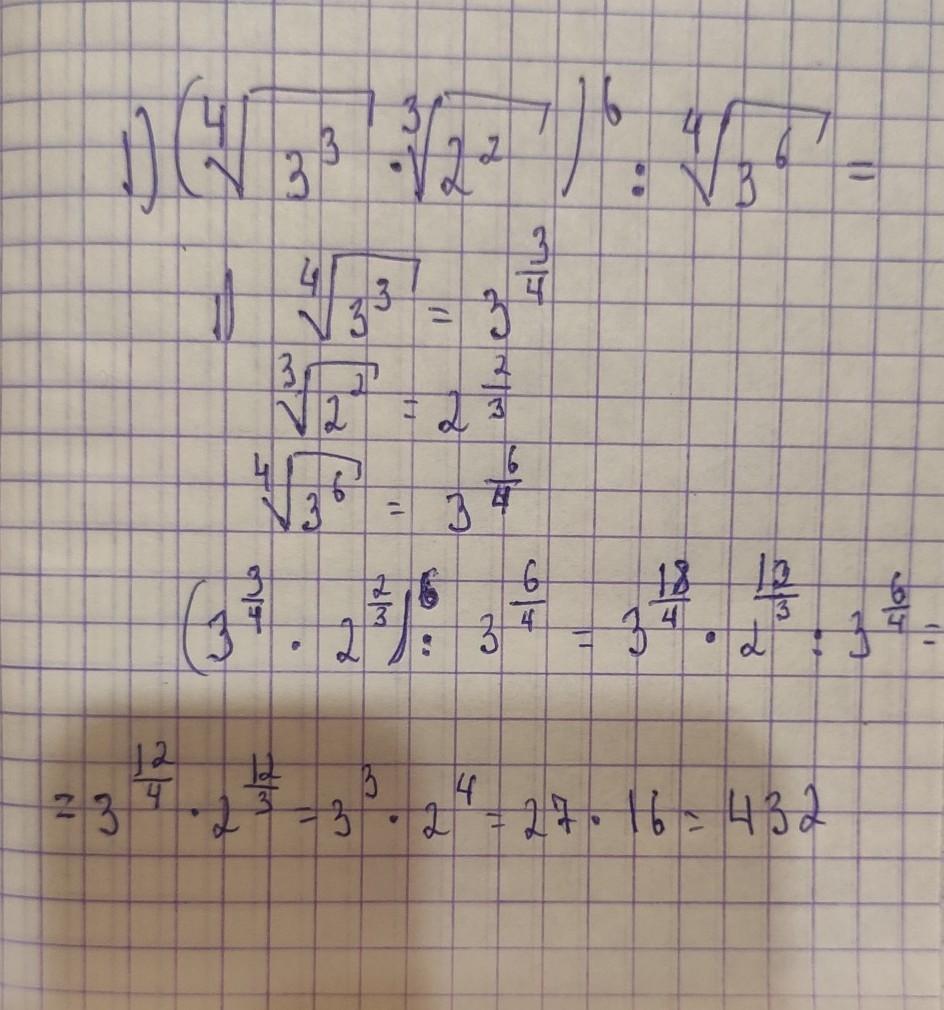 1) (∜3³ · ∛2²)⁶ : ∜3⁶ =
1) ∜3³ = 3^(3/4)
∛2² = 2^(2/3)
∜3⁶ = 3^(6/4)
(3^(3/4) · 2^(2/3))⁶ : 3^(6/4) = 3^(18/4) · 2^(12/3) : 3^(6/4) =
= 3^(12/4) · 2^(12/3) = 3³ · 2⁴ = 27 · 16 = 432